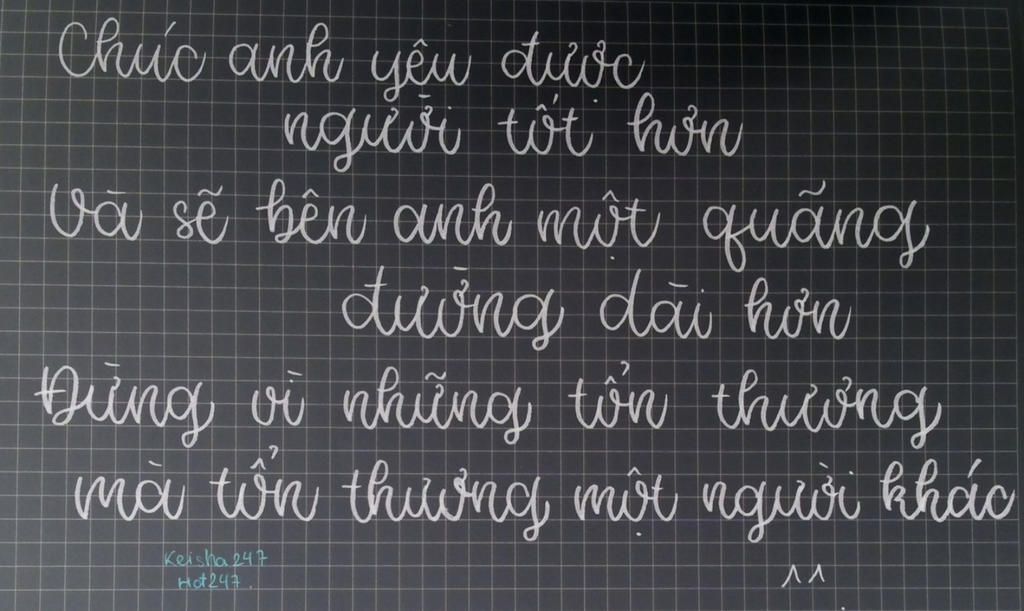 Chúc anh yêu được
người tốt hơn
Và sẽ bên anh một quãng
đường dài hơn
Đừng vì những tổn thương
mà tổn thương một người khác
Keisha247
Hot247.
^^